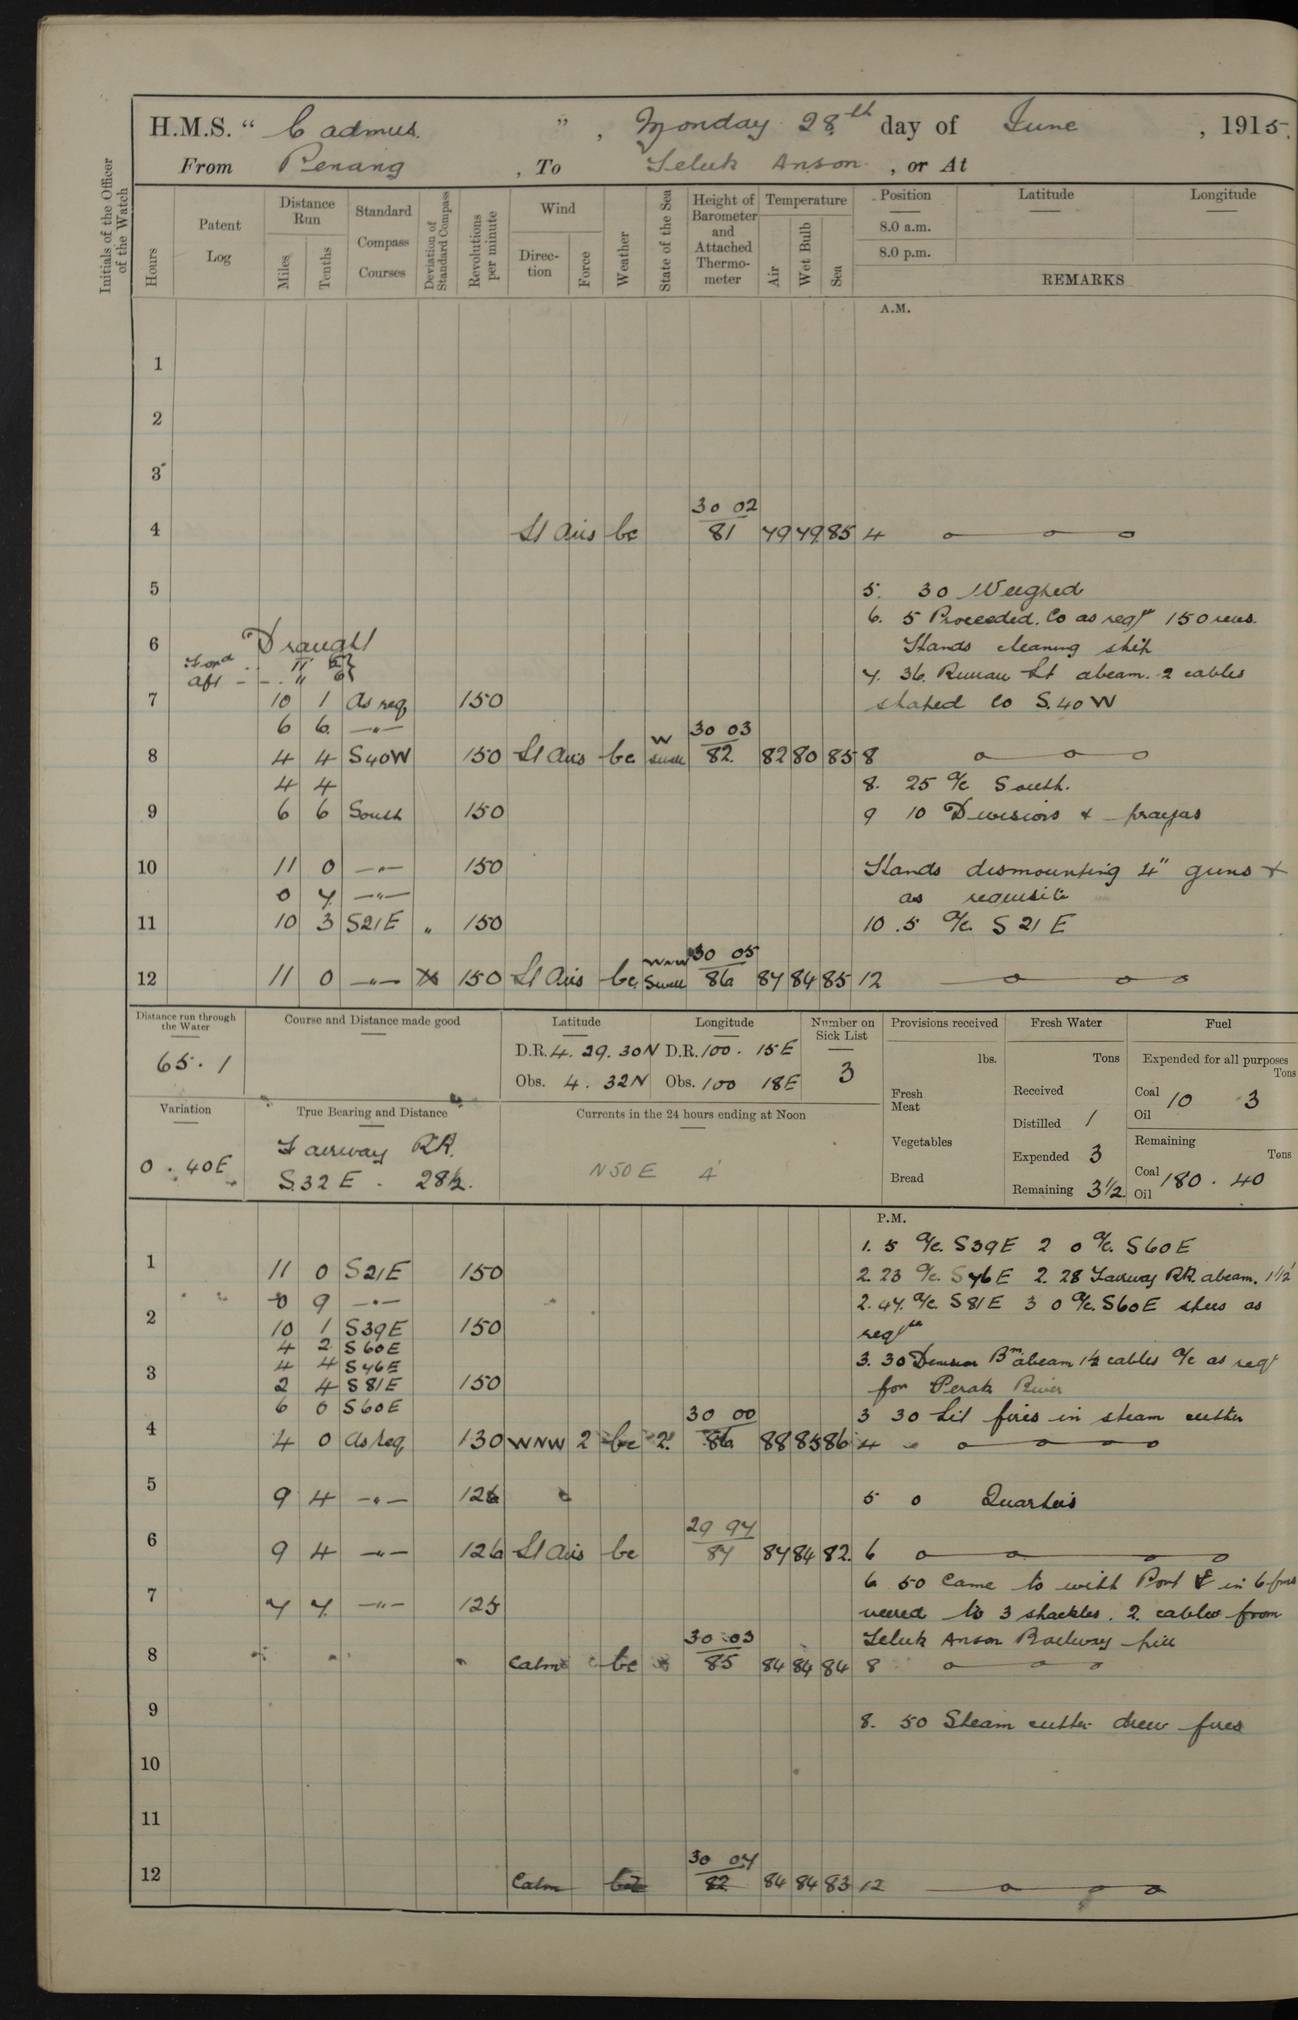 H.M.S. " Cadmus. ", Monday 28th day of June, 1915.
From Penang, To Teluk Anson, or At
Initials of the Officer of the Watch
Hours
Patent Log
Distance Run
Miles
Tenths
Standard Compass Courses
Deviation of Standard Compass
Revolutions per minute
Wind
Direction
Force
Weather
State of the Sea
Height of Barometer and Attached Thermometer
Temperature
Air
Wet Bulb
Sea
Position
8.0 a.m.
8.0 p.m.
Latitude
Longitude
REMARKS
A.M.
1
2
3
30 02
4 Lt Airs bc 81 79 79 85 4
5 5. 30 Weighed
6. 5 Proceeded. Co as reqr 150 revs.
6 Draught Hands cleaning ship
Ford
aft 7. 36. Rimau Lt abeam. 2 cables
7 10 1 As req 150 shaped Co S.40W
6 6 —"— 30 03
8 4 4 S40W 150 Lt Airs bc W swell 82 82 80 85 8
4 4 8. 25 a/c South.
9 6 6 South 150 9 10 Divisions & prayers
10 11 0 —"— 150 Hands dismounting 4" guns &
0 7 —"— as requisite
11 10 3 S21E " 150 10.5 a/c. S 21 E
30 05
12 11 0 —"— 150 Lt Airs bc WNW Swell 86 87 84 85 12
Distance run through the Water
65.1
Course and Distance made good
Latitude
D.R. 4. 29. 30N
Obs. 4. 32N
Longitude
D.R. 100. 15E
Obs. 100 18E
Number on Sick List
3
Provisions received
lbs.
Fresh Meat
Vegetables
Bread
Fresh Water
Tons
Received
Distilled 1
Expended 3
Remaining 3½
Fuel
Expended for all purposes
Tons
Coal 10 3
Oil
Remaining
Tons
Coal 180. 40
Oil
Variation
0. 40E
True Bearing and Distance
Fairway RK.
S.32E. 28½.
Currents in the 24 hours ending at Noon
N50E 4'
P.M.
1. 5 a/c. S39E 2 0 a/c. S60E
1 11 0 S21E 150 2. 23 a/c. S76E 2. 28 Fairway RK abeam. 1½'
0 9 —"— 2. 47. a/c. S81E 3 0 a/c. S60E steers as
2 10 1 S39E 150 reqte
4 2 S60E
3 4 4 S76E 3. 30 Bn abeam 1½ cables a/c as reqr
2 4 S81E 150 for Perak River
6 0 S60E 30 00 3 30 Lit fires in steam cutter
4 4 0 As req 130 WNW 2 bc 2. 86 88 85 86 4
5 9 4 —"— 126 5 0 Quarters
29 97
6 9 4 —"— 126 Lt Airs bc 87 87 84 82. 6
6 50 Came to with Port ⚓ in 6 fms
7 7 7 —"— 125 veered to 3 shackles. 2 cables from
30 03 Teluk Anson Railway pier
8 Calm bc 85 84 84 84 8
9 8. 50 Steam cutter drew fires
10
11
30 04
12 Calm 82 84 84 83 12